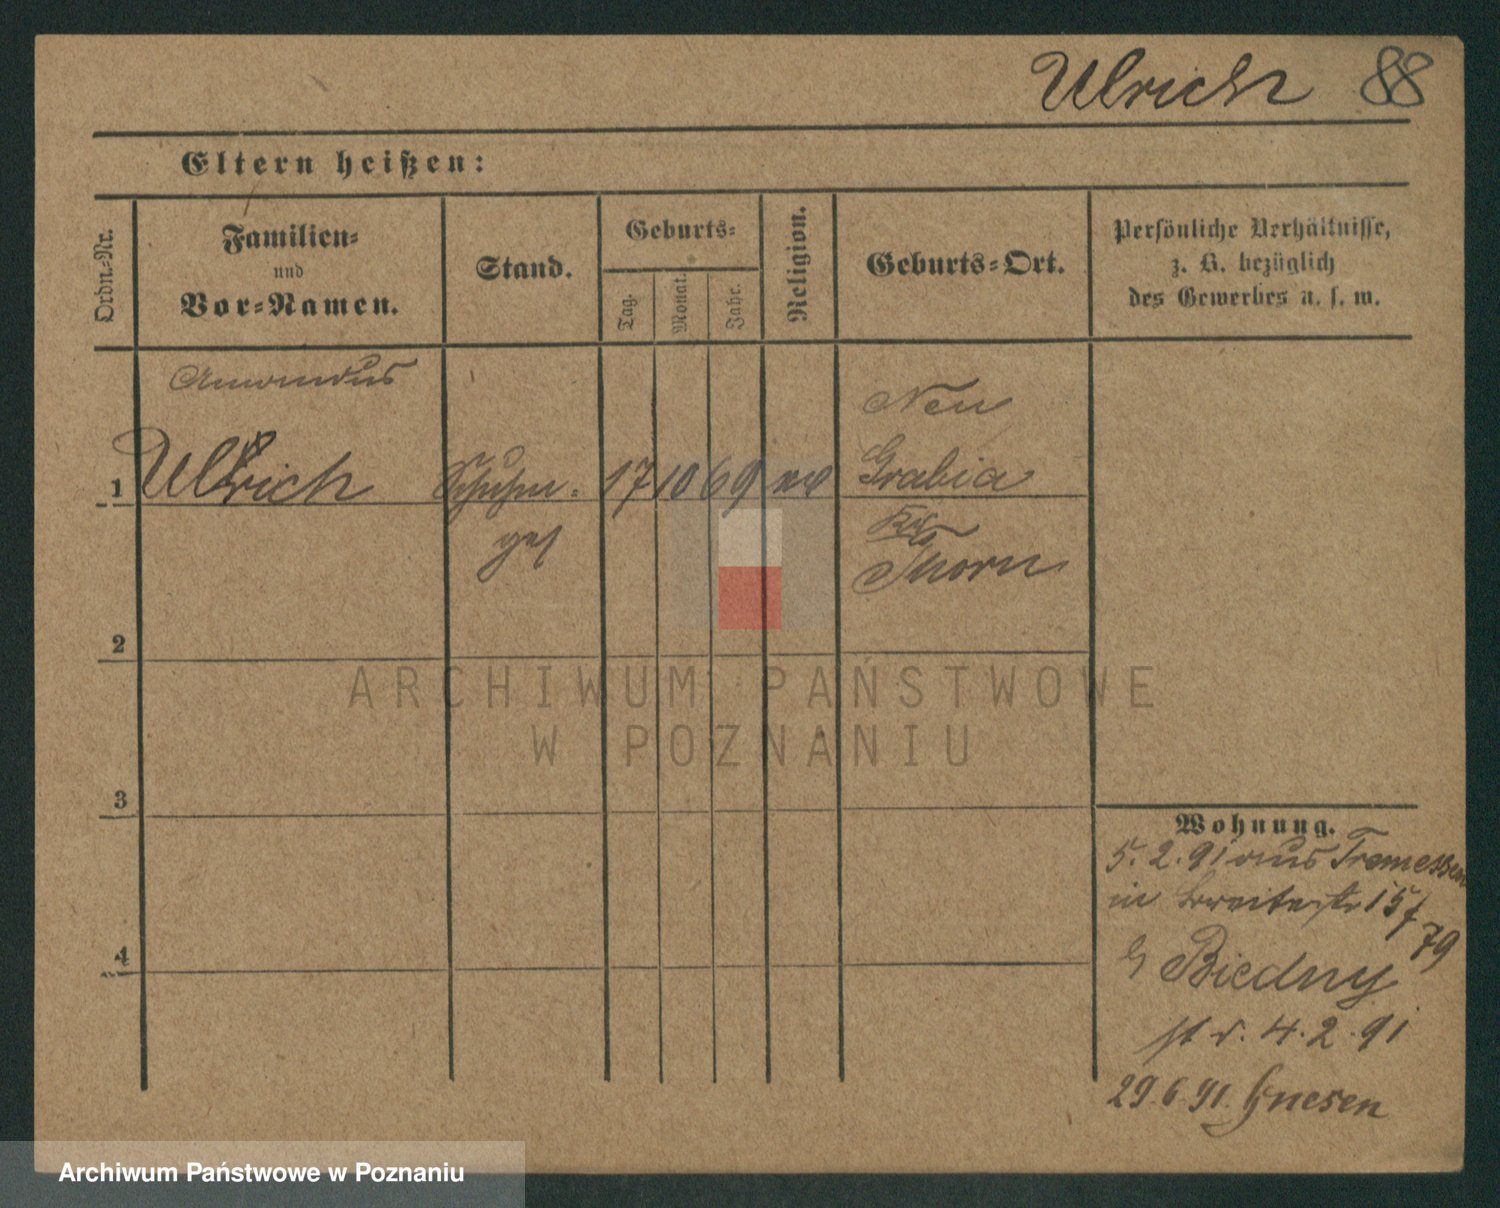 Ulrich 88
Eltern heißen:
Ordn.-Nr.
Familien-
und
Vor-Namen.
Stand.
Geburts-
Tag.
Monat.
Jahr.
Religion.
Geburts-Ort.
Persönliche Verhältnisse,
z. B. bezüglich
des Gewerbes u. s. w.
Amandus
1 Ulrich Schuhm- 17 10 69 ev
ges
Neu
Grabia
Krs
Thorn
2
3
4
Wohnung.
5. 2. 91 aus Tremessen
in Breitestr 15/
79
Biedny
st v. 4. 2. 91
29.6.91. Gnesen
ARCHIWUM PAŃSTWOWE
W POZNANIU
Archiwum Państwowe w Poznaniu